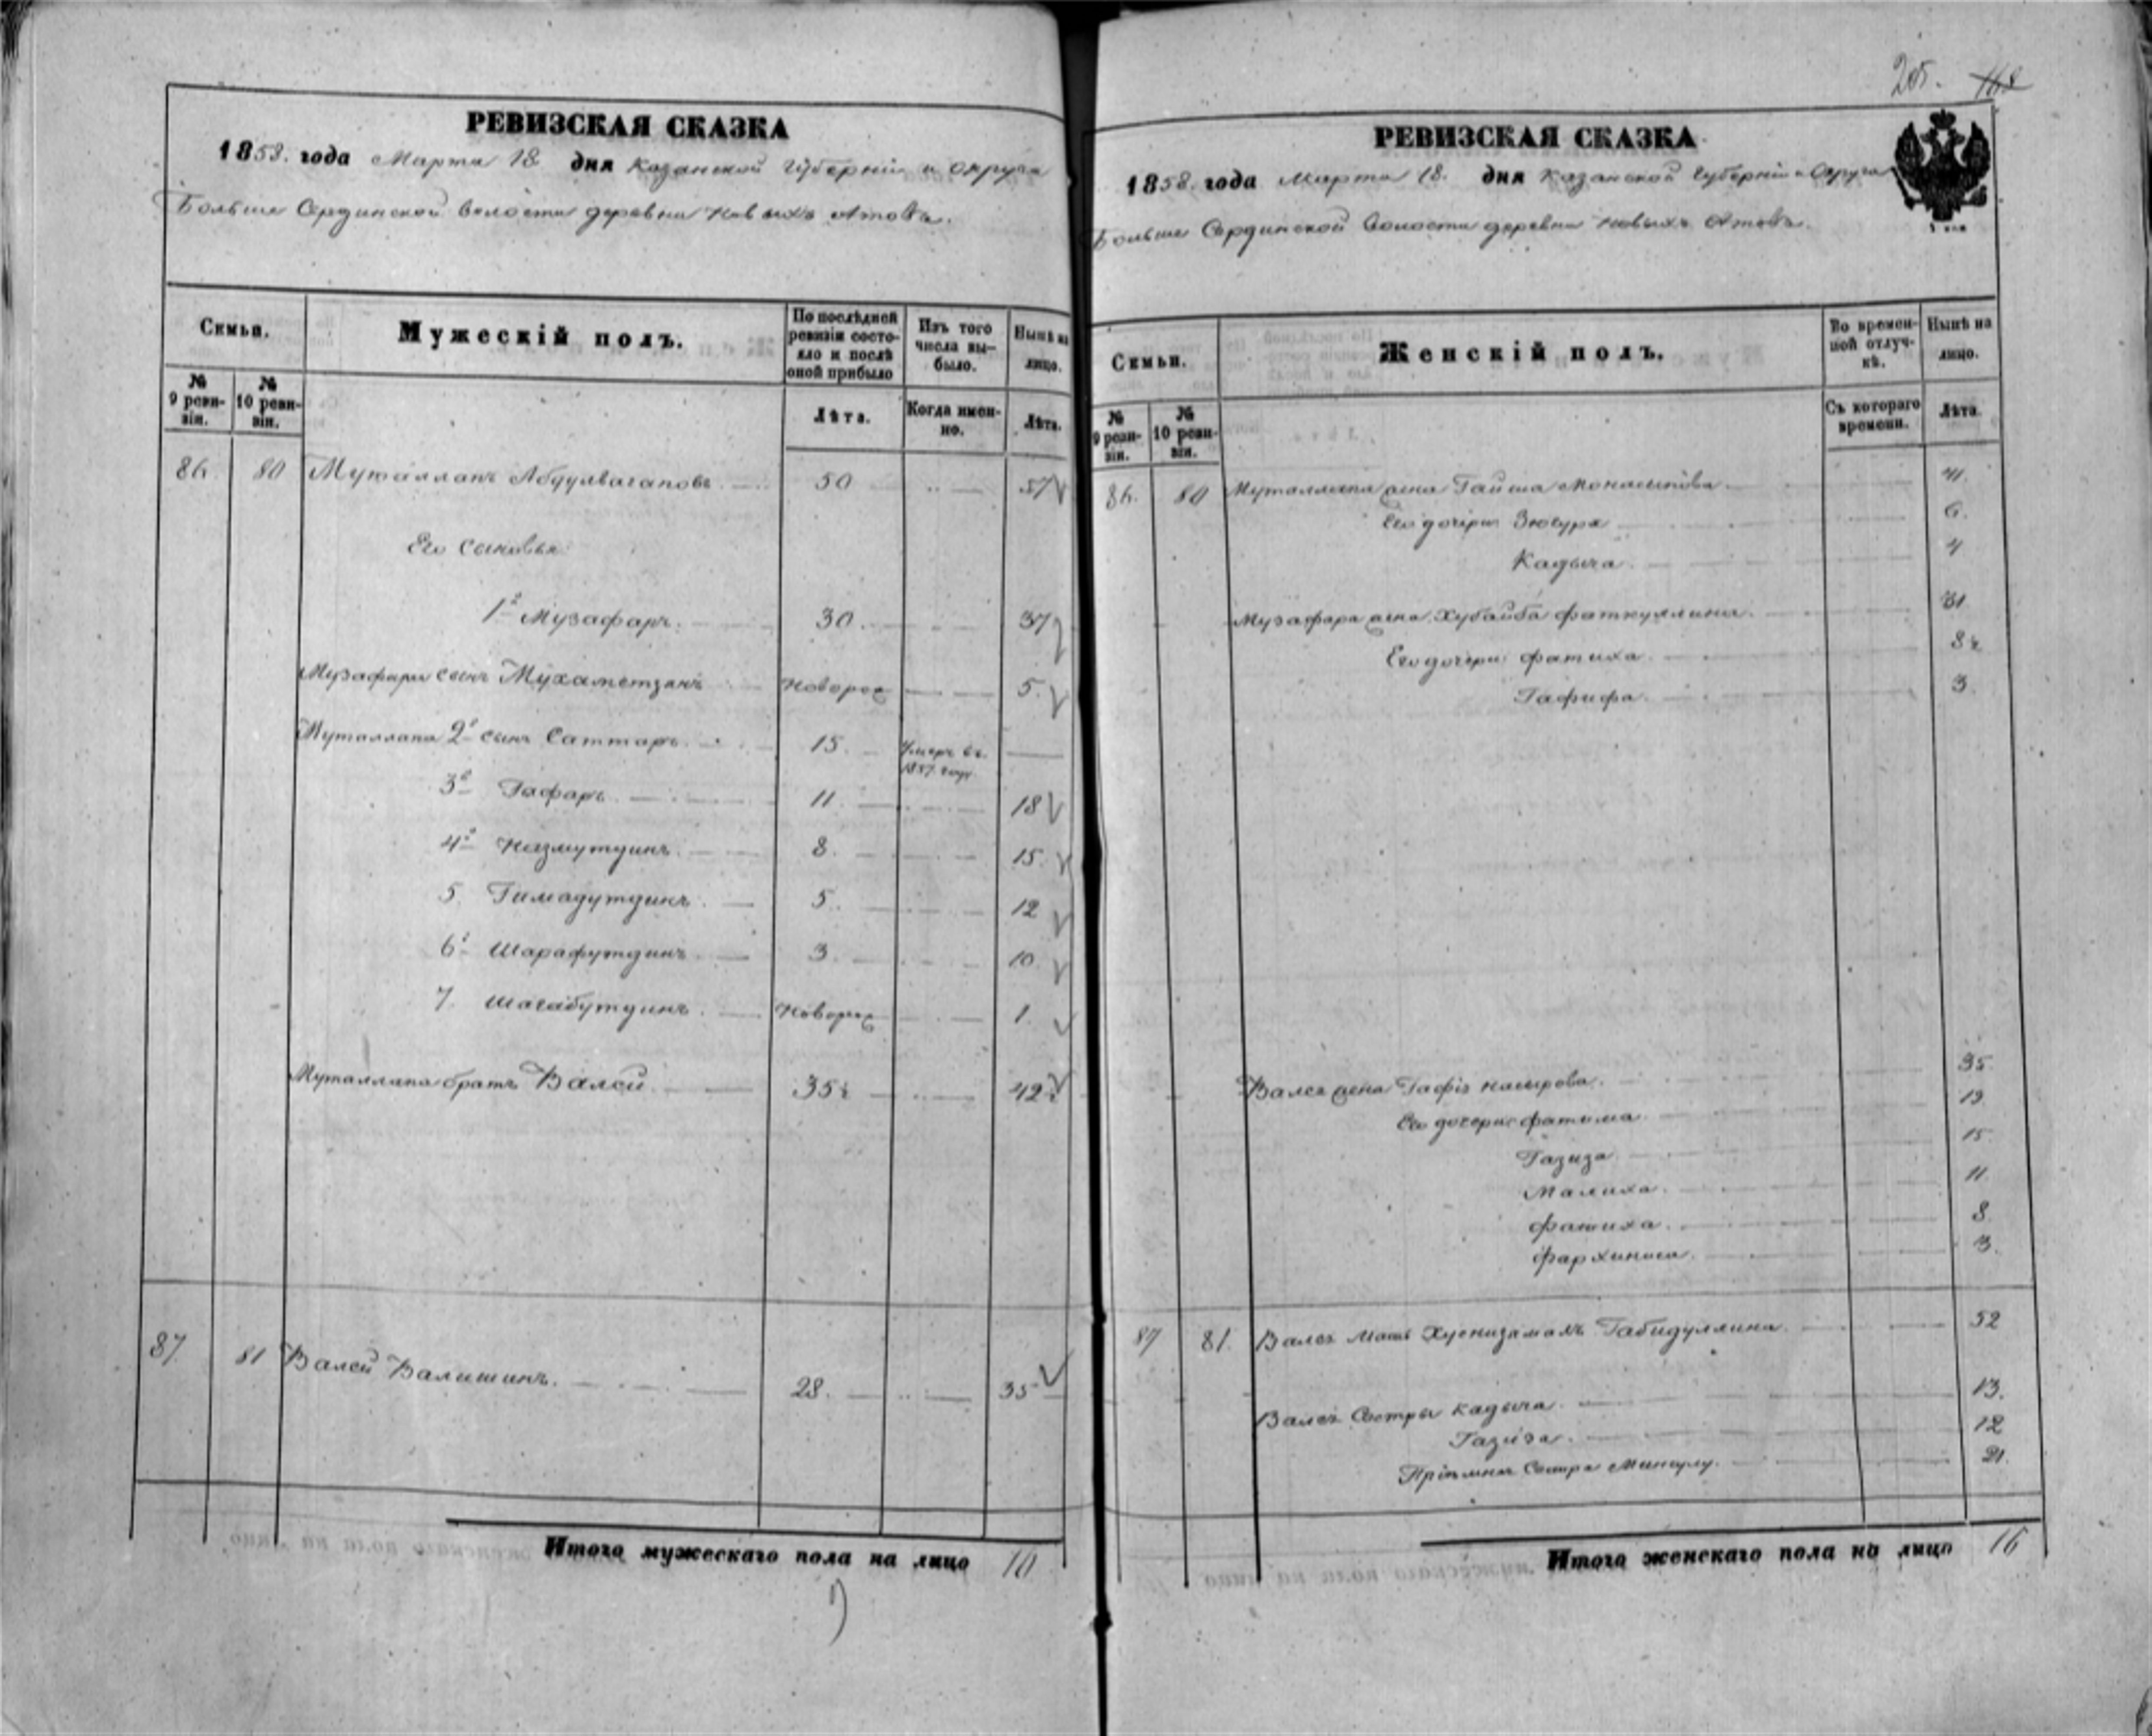 205. 168
РЕВИЗСКАЯ СКАЗКА
1858. года Марта 18 дня Казанской Губерніи и округа
Больше Сердинской волости деревни Новыхъ Атовъ.
Семьи.
Мужескій полъ.
По послѣдней ревизіи состояло и послѣ оной прибыло
Изъ того числа выбыло.
Нынѣ на лицо.
№ 9 ревизіи.
№ 10 ревизіи.
Лѣта.
Когда именно.
Лѣта.
86. 80 Муталлапъ Абдулвагаповъ. 50 57
Его сыновья
1й Музафаръ. 30. 37
Музафара сынъ Мухаметзянъ Новорож 5.
Муталлапа 2й сынъ Саттаръ. 15. Умеръ въ 1857. году.
3й Гафаръ. 11. 18
4й Назмутдинъ. 8. 15.
5. Гимадутдинъ. 5. 12
6й Шарафутдинъ. 3. 10.
7. Шагабутдинъ. Новорож 1.
Муталлапа братъ Валей. 35½ 42½
87. 81 Валей Валишинъ. 28. 35
Итого мужескаго пола на лицо 10
РЕВИЗСКАЯ СКАЗКА
1858. года Марта 18. дня Казанской Губерніи и Округа
Больше Сердинской Волости деревни Новыхъ Атовъ.
Семьи.
Женскій полъ.
Во временной отлучкѣ.
Нынѣ на лицо.
№ 9 ревизіи.
№ 10 ревизіи.
Съ котораго времени.
Лѣта.
86. 80 Муталлапа жена Гайша Монасыпова 41.
Его дочери Зюгура 6.
Кадыча. 4
Музафара жена Хубайба Фаткуллина. 31
Его дочери Фатиха. 8½
Гафифа. 3.
Валея жена Гафіз Насырова. 35.
Его дочери Фатыма 19.
Газиза 15.
Малиха. 11.
Фатиха. 8.
Фархиниса. 3.
87 81. Валея Мать Хуснизамалъ Габидуллина. 52
Валея Сестры Кадыча. 13.
Газиза. 12
Пріемная Сестра 21.
Итого женскаго пола на лицо 16